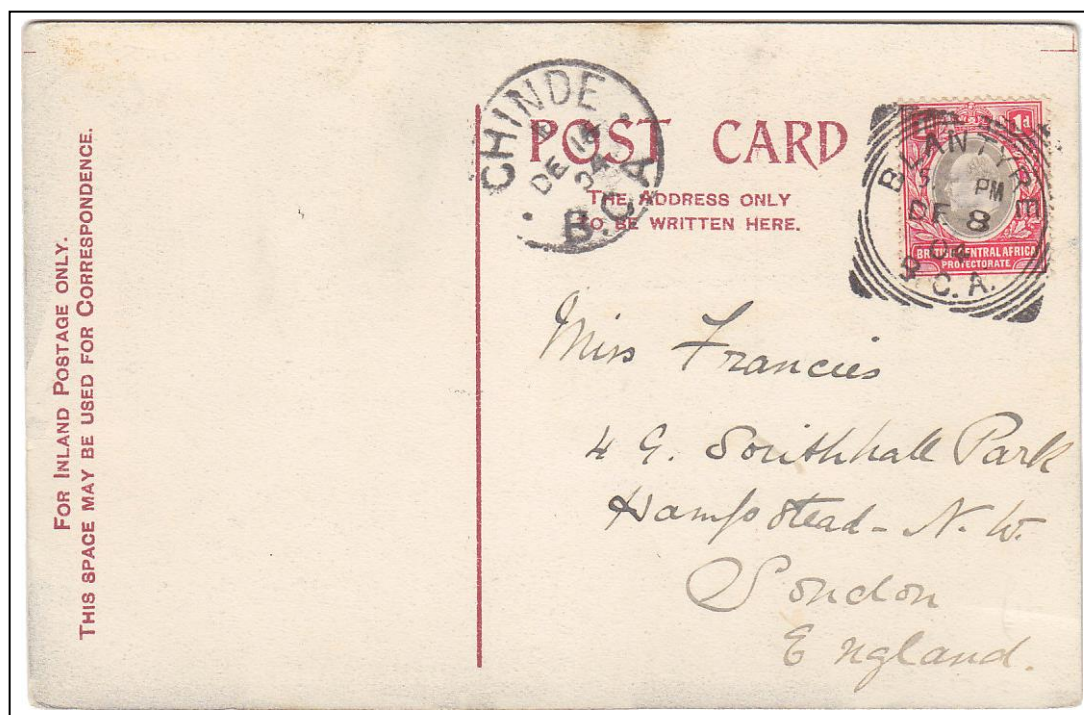 FOR INLAND POSTAGE ONLY.
THIS SPACE MAY BE USED FOR CORRESPONDENCE.
CHINDE
A
DE 16
04
B.C.A
POST CARD
THE ADDRESS ONLY
TO BE WRITTEN HERE.
1d
BLANTYRE
5 PM
DE 8
04
B.C.A.
BRITISH CENTRAL AFRICA
PROTECTORATE
Miss Francies
4 G. Southhall Park
Hampstead - N.W.
London
England.